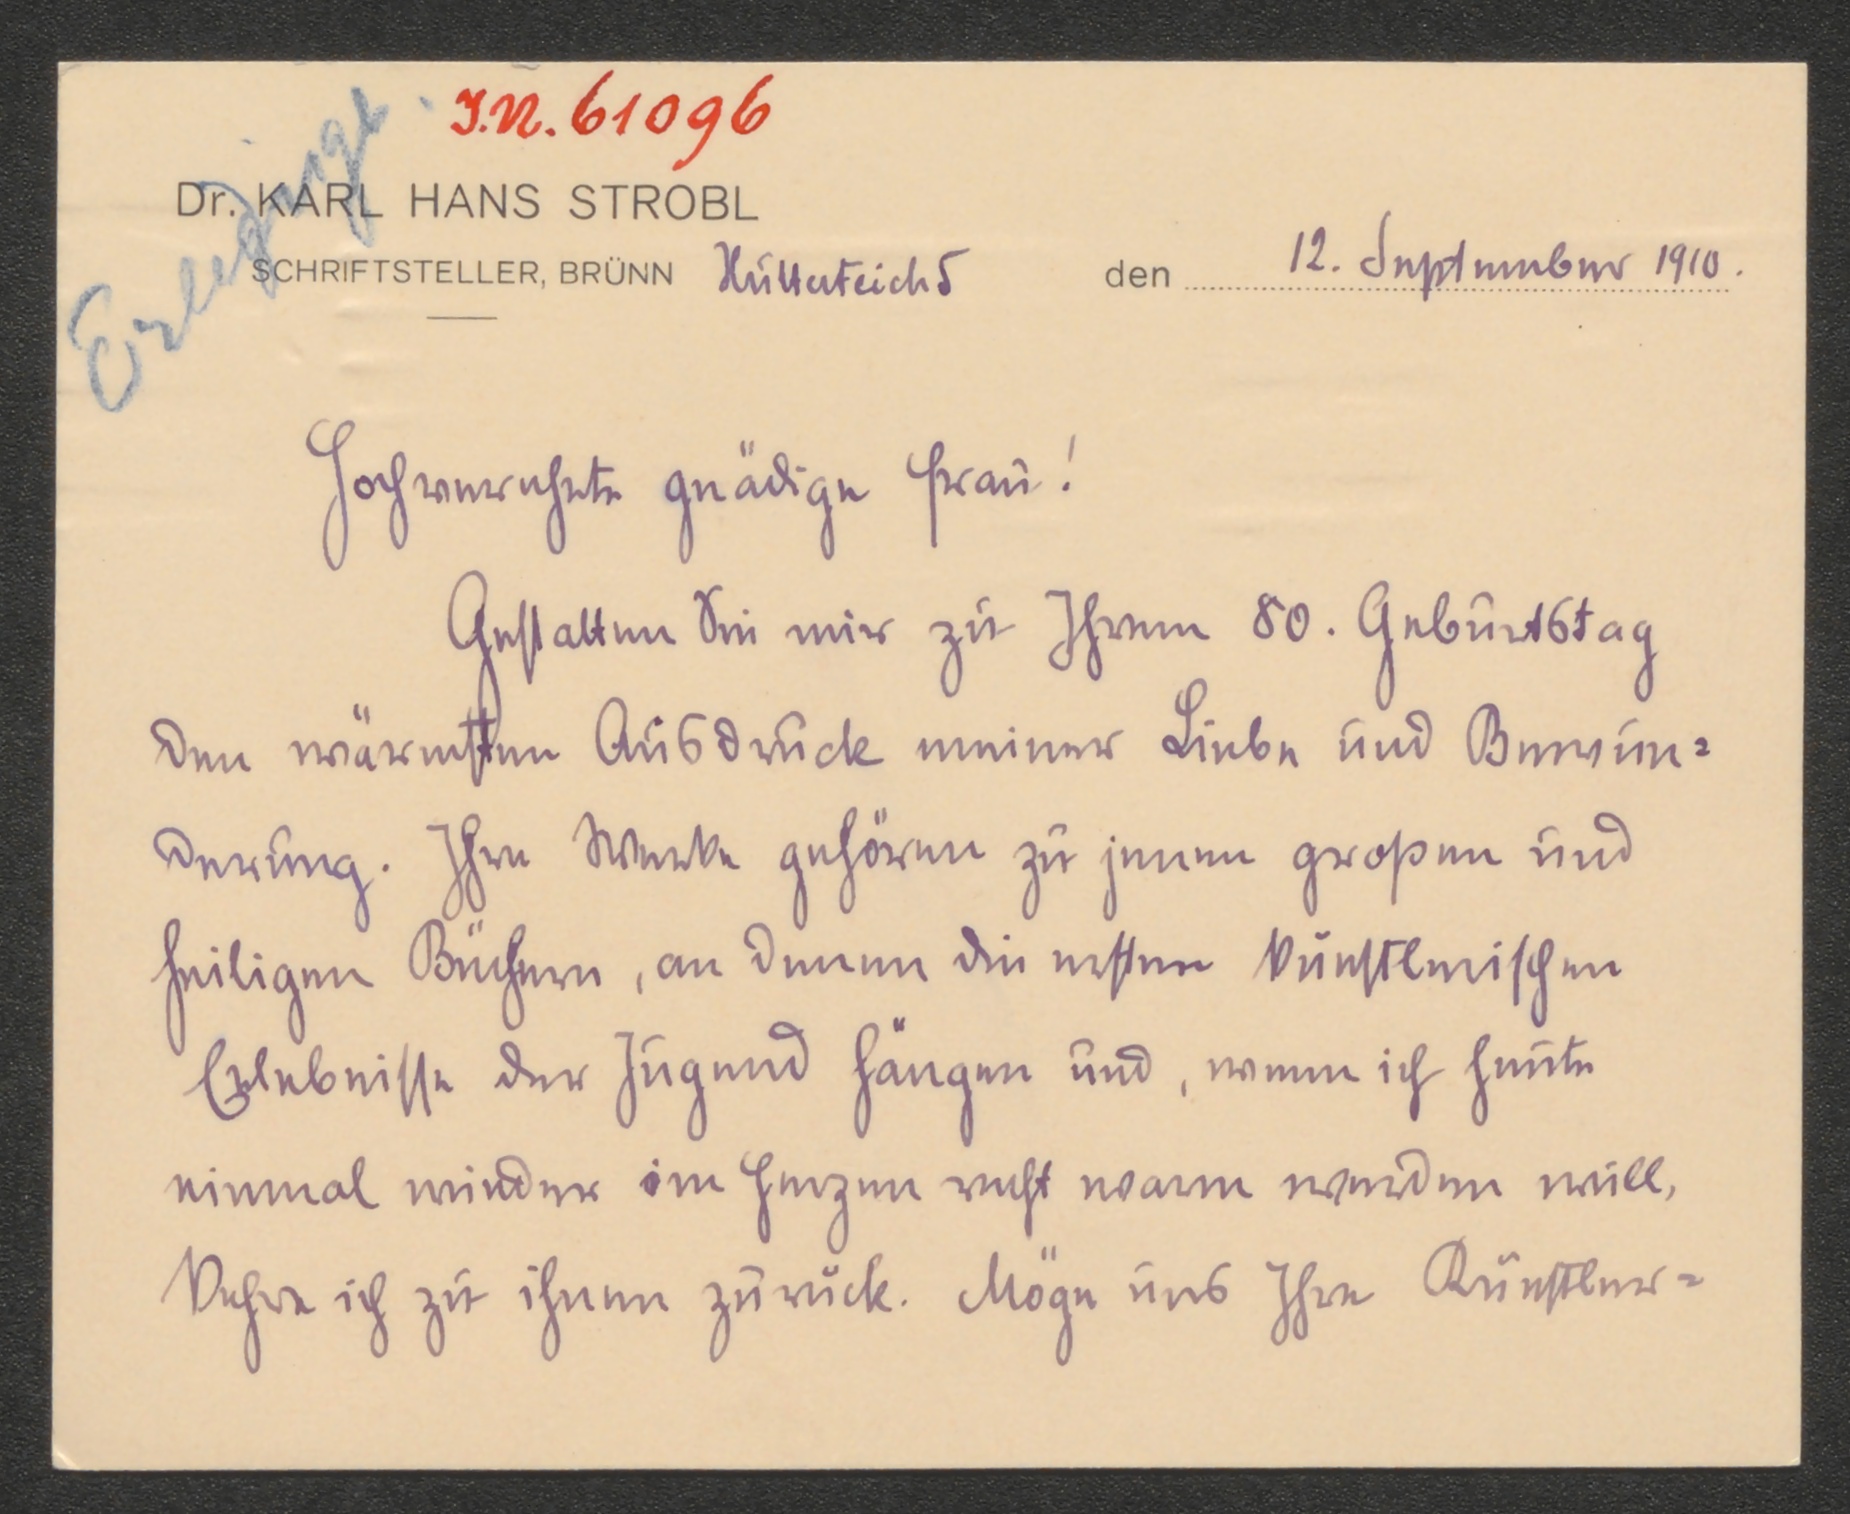 Erledigt.
I.N. 61096
Dr. KARL HANS STROBL
SCHRIFTSTELLER, BRÜNN Hutterteich 5 den 12. September 1910.
Hochverehrte gnädige Frau!
Gestatten Sie mir zu Ihrem 80. Geburtstag
den wärmsten Ausdruck meiner Liebe und Bewun=
derung. Ihre Werke gehören zu jenen großen und
heiligen Büchern, an denen die ersten künstlerischen
Erlebnisse der Jugend hängen und, wenn ich heute
einmal wieder im Herzen recht warm werden will,
kehre ich zu ihnen zurück. Möge uns Ihre Künstler=